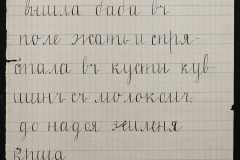 вышла баба въ
поле жать и спря-
тала въ кусты кув-
шинъ съ молокомъ.
до